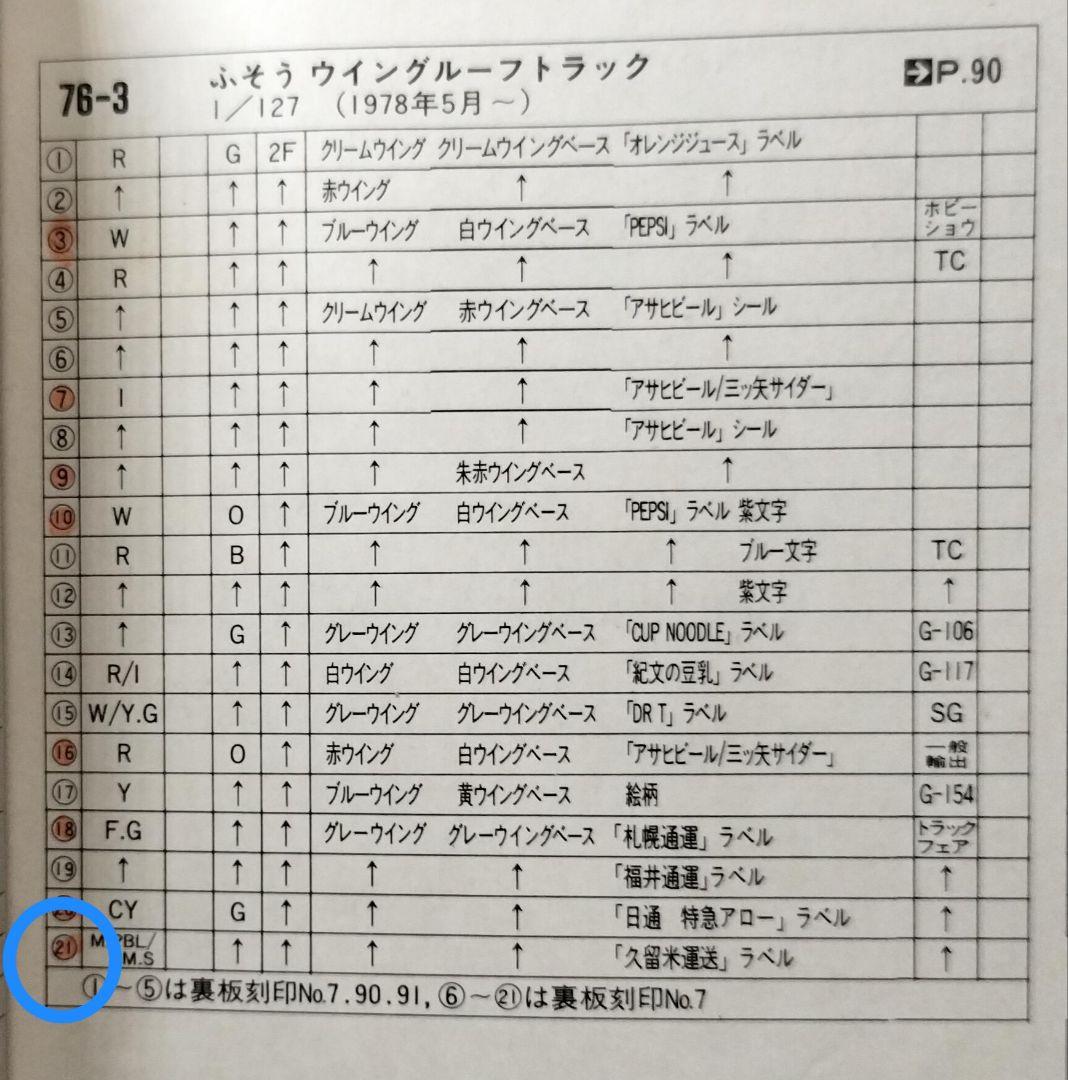 76-3 ふそう ウイングルーフトラック P.90
1/127 (1978年5月～)
① R G 2F クリームウイング クリームウイングベース 「オレンジジュース」ラベル
② ↑ ↑ ↑ 赤ウイング ↑ ↑
③ W ↑ ↑ ブルーウイング 白ウイングベース 「PEPSI」ラベル ホビーショウ
④ R ↑ ↑ ↑ ↑ ↑ TC
⑤ ↑ ↑ ↑ クリームウイング 赤ウイングベース 「アサヒビール」シール
⑥ ↑ ↑ ↑ ↑ ↑ ↑
⑦ I ↑ ↑ ↑ ↑ 「アサヒビール/三ッ矢サイダー」
⑧ ↑ ↑ ↑ ↑ ↑ 「アサヒビール」シール
⑨ ↑ ↑ ↑ ↑ 朱赤ウイングベース ↑
⑩ W O ↑ ブルーウイング 白ウイングベース 「PEPSI」ラベル 紫文字
⑪ R B ↑ ↑ ↑ ↑ ブルー文字 TC
⑫ ↑ ↑ ↑ ↑ ↑ ↑ 紫文字 ↑
⑬ ↑ G ↑ グレーウイング グレーウイングベース 「CUP NOODLE」ラベル G-106
⑭ R/I ↑ ↑ 白ウイング 白ウイングベース 「紀文の豆乳」ラベル G-117
⑮ W/Y.G ↑ ↑ グレーウイング グレーウイングベース 「DR T」ラベル SG
⑯ R O ↑ 赤ウイング 白ウイングベース 「アサヒビール/三ッ矢サイダー」 一般輸出
⑰ Y ↑ ↑ ブルーウイング 黄ウイングベース 絵柄 G-154
⑱ F.G ↑ ↑ グレーウイング グレーウイングベース 「札幌通運」ラベル トラックフェア
⑲ ↑ ↑ ↑ ↑ ↑ 「福井通運」ラベル ↑
⑳ CY G ↑ ↑ ↑ 「日通 特急アロー」ラベル ↑
㉑ BL/M.S ↑ ↑ ↑ ↑ 「久留米運送」ラベル ↑
①～⑤は裏板刻印No.7.90.91,⑥～㉑は裏板刻印No.7